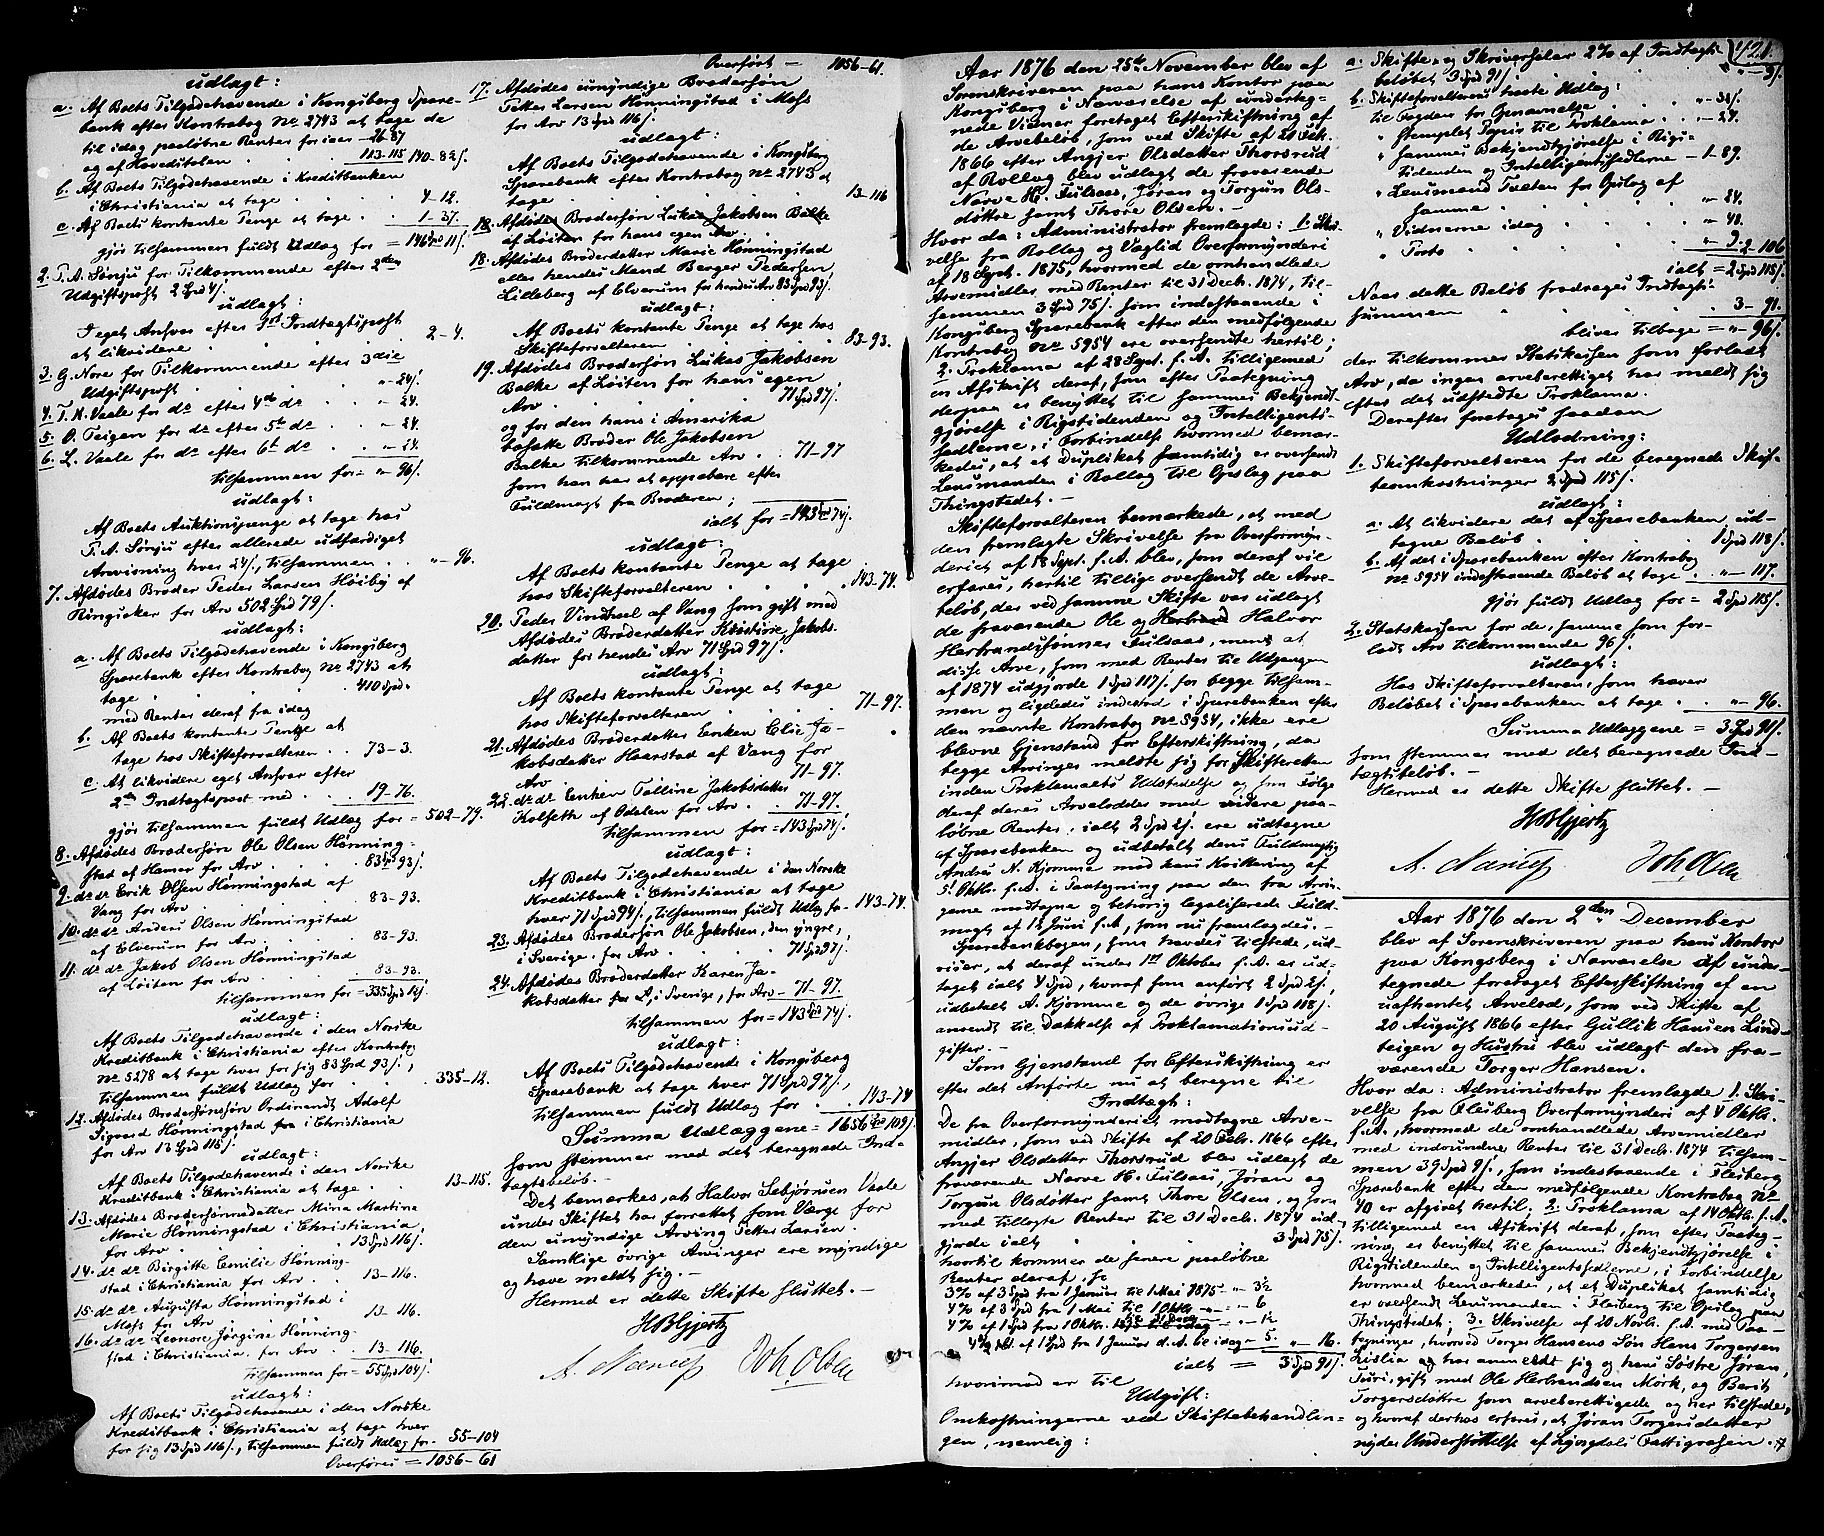 udlagt:
a. Af Boets Tilgodehavende i Kongsberg Spare-
bank efter Kontrabog No 2743 at tage de
til idag paaløbne Renter for iaar 26-87
og af Hovedstolen 113-115 140-82/.
b. Af Boets Tilgodehavende i Kreditbanken
i Christiania at tage 4-12.
c. Af Boets kontante Penge at tage 1-37.
gjør tilsammen fuldt Udlag for = 146 Spd 11/.
2. T. A. Sønju for Tilkommende efter 2den
Udgiftspost 2 Spd 4/.
udlagt:
I eget Ansvar efter 1st Indtægtspost
at likvidere 2-4.
3. G. Nore for Tilkommende efter 3die
Udgiftspost "-24/.
4. T. K. Vaale for do efter 4de do "-24.
5. O. Teigen for do efter 5te do "-24.
6. L. Vaale for do efter 6te do "-24.
tilsammen for = "-96/.
udlagt:
Af Boets Auktionspenge at tage hos
T. A. Sønju efter allerede udfærdiget
Anvisning hver 24/., tilsammen "-96.
7. Afdødes Broder Peder Larsen Høiby af
Ringsaker for Arv 502 Spd 79/.
udlagt:
a. Af Boets Tilgodehavende i Kongsberg
Sparebank efter Kontrabog No 2743 at
tage 410 Spd "
med Renter deraf fra idag
b. Af Boets kontante Penge at
tage hos Skifteforvalteren 73-3.
c. At likvidere eget Ansvar efter
2den Indtægtspost med 19-76.
gjør tilsammen fuldt Udlag for = 502-79.
8. Afdødes Brodersøn Ole Olsen Hønning-
stad af Hamar for Arv 83 Spd 93/.
9. do do Erik Olsen Hønningstad af
Vang for Arv 83-93.
10. do do Anders Olsen Hønningstad
af Elverum for Arv 83-93.
11. do do Jakob Olsen Hønningstad
af Løiten for Arv 83-93.
tilsammen for = 335 Spd 12/.
udlagt:
Af Boets Tilgodehavende i den Norske
Kreditbank i Christiania efter Kontrabog
No 5278 at tage hver for sig 83 Spd 93/.,
tilsammen fuldt Udlag for 335-12.
12. Afdødes Brodersønsøn Ordinandt Adolf
Sigvard Hønningstad fra i Christiania
for Arv 13 Spd 115/.
udlagt:
Af Boets Tilgodehavende i den Norske
Kreditbank i Christiania at tage 13-115.
13. Afdødes Brodersønnedatter Mina Martine
Marie Hønningstad i Christiania,
for Arv 13 Spd 116/.
14. do do Birgitte Emilie Hønning-
stad i Christiania for Arv 13-116.
15. do do Augusta Hønningstad i
Moss for Arv 13-116.
16. do do Leonore Jørgine Hønning-
stad i Christiania, for Arv 13-116.
tilsammen for = 55 Spd 104/.
udlagt:
Af Boets Tilgodehavende i den Norske
Kreditbank i Christiania at tage hver
for sig 13 Spd 116/., tilsammen fuldt Udlag for 55-104
Overføres = 1056-61
Overført - 1056-61.
17. Afdødes umyndige Brodersøn
Petter Larsen Hønningstad i Moss
for Arv 13 Spd 116/.
udlagt:
Af Boets Tilgodehavende i Kongsberg
Sparebank efter Kontrabog No 2743 at
tage 13-116
18. Afdødes Brodersøn Lukas Jakobsen Balke
af Løiten for hans egen Arv
18. Afdødes Broderdatter Marie Hønningstad
eller hendes Mand Berger Pedersen
Lilleberg af Elverum for hendes Arv 83 Spd 93/.
udlagt:
Af Boets kontante Penge at tage hos
Skifteforvalteren 83-93.
19. Afdødes Brodersøn Lukas Jakobsen
Balke af Løiten for hans egen
Arv 71 Spd 97/.
og for den hans i Amerika
bosatte Broder Ole Jakobsen
Balke tilkommende Arv 71-97
som han har at oppebære efter
Fuldmagt fra Broderen;
ialt for = 143 Spd 74/.
udlagt:
Af Boets kontante Penge at tage
hos Skifteforvalteren 143-74.
20. Peder Vindhsel af Vang som gift med
Afdødes Broderdatter Kristine Jakobs-
datter for hendes Arv 71 Spd 97/.
udlagt:
Af Boets kontante Penge at tage
hos Skifteforvalteren 71-97.
21. Afdødes Broderdatter Enken Elie Ja-
kobsdatter Haarstad af Vang for
Arv 71-97.
22. do do Enken Talline Jakobsdatter
Kolseth af Odalen for Arv 71-97.
tilsammen for = 143 Spd 74/.
udlagt:
Af Boets Tilgodehavende i den Norske
Kreditbank i Christiania at tage
hver 71 Spd 97/., tilsammen fuldt Udlæg for 143-74.
23. Afdødes Brodersøn Ole Jakobsen, den yngre,
i Sverige, for Arv 71 Spd 97/.
24. Afdødes Broderdatter Karen Ja-
kobsdatter i Sverige, for Arv 71-97.
tilsammen for = 143 Spd 74/.
udlagt:
Af Boets Tilgodehavende i Kongsberg
Sparebank at tage hver 71 Spd 97/.,
tilsammen fuldt Udlæg for 143-74
Summa Udlæggene = 1656 Spd 109/.
som stemmer med det beregnede Ind-
tægtsbeløb.-
Det bemærkes, at Halvor Sebjørnsen Vaale
under Skiftet har forrettet som Værge for
den umyndige Arving Petter Larsen.
Samtlige øvrige Arvinger ere myndige
og have meldt sig.-
Hermed er dette Skifte sluttet.-
HBHjertz
A. Nærup Joh Olsen
421.
Aar 1876 den 25de November blev af
Sorenskriveren paa hans Kontor paa
Kongsberg i Nærværelse af underteg-
nede Vidner foretaget Efterskiftning af
de Arvebeløb, som ved Skifte af 20 Feb.
1866 efter Angjer Olsdatter Thorsrud
af Rollag blev udlagt de fraværende
Narve H. Fulsaas, Jøran og Torgun Ols-
døttre samt Thore Olsen.-
Hvor da: Administrator fremlagde: 1. Skri-
velse fra Rollag og Væglid Overformynderi
af 18 Sept. 1875, hvormed de omhandlede
Arvemidler med Renter til 31 Decb. 1874, til-
sammen 3 Spd 75/. som indestaaende i
Kongsberg Sparebank efter den medfølgende
Kontrabog No 5954 ere oversendte hertil;
2. Proklama af 28 Sept. f. A. tilligemed
en Afskrift deraf, som efter Paategning
derpaa er benyttet til sammes Bekjendt-
gjørelse i Rigstidenden og Intelligents-
sedlerne, i Forbindelse hvormed bemær-
kedes, at et Duplikat samtidig er oversendt
Lensmanden i Rollag til Opslag paa
Thingstedet.-
Skifteforvalteren bemærkede, at med
den fremlagte Skrivelse fra Overformyn-
deriet af 18 Sept. f. A. blev, som deraf vil
erfares, hertil tillige oversendt de Arve-
beløb, der ved samme Skifte var udlagt
de fraværende Ole og Herbrand Halvor
Herbrandssønnes Fulsaas, mens at
disse Arve, som med Renter til Udgangen
af 1874 udgjorde 1 Spd 117/. for begge tilsam-
men og ligeledes indestod i Sparebanken efter
den nævnte Kontrabog No 5954, ikke ere
blevne Gjenstand for Efterskiftning, da
begge Arvinger meldte sig for Skifteretten
inden Proklamaets Udstedelse og som Følge
deraf deres Arvelodder med videre paa-
løbne Renter, ialt 2 Spd 2/. ere udtagne
af Sparebanken og udbetalt deres Fuldmægtig
Andres N. Kjomme med hans Kvittering af
5 Oktbr. f. A. i Paategning paa den fra Arvin-
gerne modtagne og behørig legaliserede Fuld-
magt af 12 Juni f. A., som nu fremlagdes.-
Sparebankbogen, som havdes tilstede, ud-
viser, at deraf under 1ste Oktober f. A. er ud-
taget ialt 4 Spd, hvoraf som anført 2 Spd 2/.,
udbetalt A. Kjomme og de øvrige 1 Spd 118/.
anvendt til Dækkelse af Proklamationsud-
gifter.-
Som Gjenstand for Efterskiftning er
efter det Anførte nu at beregne til
Indtægt:
De fra Overformynderiet modtagne Arve-
midler, som ved Skifte af 20 Febr. 1866 efter
Angjer Olsdatter Thorsrud blev udlagt de
fraværende Narve H. Fulsaas, Jøran og
Torgun Olsdøttre samt Thore Olsen, og som
med tillagte Renter til 31 Decb. 1874 ud-
gjorde ialt 3 Spd 75/.
hvortil kommer de senere paaløbne
Renter deraf,
3% af 3 Spd fra 1 Januar til 1 Mai 1875 - " - 3½
4% af 3 Spd fra 1 Mai til 1 Oktbr. - " - 6
4% af 1 Spd fra 1 Oktbr.
4% af 1 Spd fra 1 Januar d. A. til idag - 5. " - 16.
ialt = 3 Spd 91/.
hvorimod er til
Udgift:
Omkostningerne ved Skiftebehandlin-
gen, nemlig:
a. Skifte- og Skriversalær 2% af Indtægts-
beløbet 3 Spd 91/. "-9/.
b. Skifteforvalterens havte Udlæg:
til Fogden for Gjennemsyn "-31/.
" stemplet Papir til Proklama "-24.
" sammes Bekjendtgjørelse i Rigs-
tidenden og Intelligentssedlerne - 1-89.
" Lensmand Tveten for Opslag af
samme "-24.
" Vidnerne idag "-40.
" Porto "-9. 2-106
ialt = 2 Spd 115/.
Naar dette Beløb fradrages Indtægts-
summen 3-91.
bliver tilbage = "-96/.
der tilkommer Statskassen som forladt
Arv, da ingen arveberettiget har meldt sig
efter det udstedte Proklama.
Derefter foretoges saadan
Udlodning:
1. Skifteforvalteren for de beregnede Skif-
teomkostninger 2 Spd 115/.
udlagt:
a. At likvidere det af Sparebanken ud-
tagne Beløb 1 Spd 118/.
b. Af det i Sparebanken efter Kontrabog
No 5954 indestaaende Beløb at tage "-117.
gjør fuldt Udlæg for = 2 Spd 115/.
2. Statskassen for de, samme som for-
ladt Arv tilkommende 96/.
udlagt:
Hos Skifteforvalteren, som hæver
Beløbet i Sparebanken at tage "-96.
Summa Udlæggene = 3 Spd 91/.
som stemmer med det beregnede Ind-
tægtsbeløb.-
Hermed er dette Skifte sluttet.-
HBHjertz
A. Nærup Joh Olsen
Aar 1876 den 2den December
blev af Sorenskriveren paa hans Kontor
paa Kongsberg i Nærværelse af under-
tegnede foretaget Efterskiftning af en
uafhentet Arvelod, som ved Skifte af
20 August 1866 efter Gullik Hansen Lind-
teigen og Hustru blev udlagt den fra-
værende Torger Hansen.
Hvor da: Administrator fremlagde 1. Skri-
velse fra Flesberg Overformynderi af 4 Oktbr.
f. A., hvormed de omhandlede Arvemidler
med indvundne Renter til 31 Decb. 1874 tilsam-
men 39 Spd 9/., som indestaaende i Flesberg
Sparebank efter den medfølgende Kontrabog No
40 er afgivet hertil; 2. Proklama af 14 Oktbr. f. A.
tilligemed en Afskrift deraf, som efter Paateg-
ning er benyttet til sammes Bekjendtgjørelse i
Rigstidenden og Intelligentssedlerne, i Forbindelse
hvormed bemærkedes, at et Duplikat samtidig
er oversendt Lensmanden i Flesberg til Opslag paa
Thingstedet; 3. Skrivelse af 20 Novbr. f. A. med Paa-
tegninger, hvorved Torger Hansens Søn Hans Torgersen
Lislia og har anmeldt sig og hans Søstre Jøran,
Turi, gift med Ole Herbrandsen Mørk, og Berit
Torgersdøttre som arveberettigede og her tilstede,
og hvoraf derhos erfares, at Jøran Torgersdatter
nyder Understøttelse af Lyngdals Fattigvæsen.